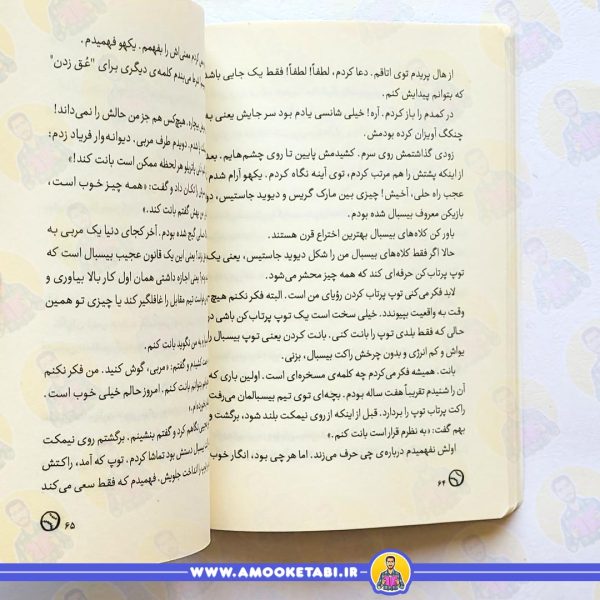 از هال پریدم توی اتاقم. دعا کردم، لطفاً! لطفاً! فقط یک جایی باشد
که بتوانم پیدایش کنم.
در کمدم را باز کردم. آره! خیلی شانسی یادم بود سر جایش یعنی به
چنگک آویزان کرده بودمش.
زودی گذاشتمش روی سرم. کشیدمش پایین تا روی چشم‌هایم. بعد
از اینکه پشتش را هم مرتب کردم، توی آینه نگاه کردم. یکهو آرام شدم.
عجب راه حلی، آخیش! چیزی بین مارک گریس و دیوید جاستیس، دو
بازیکن معروف بیسبال شده بودم.
باور کن کلاه‌های بیسبال بهترین اختراع قرن هستند.
حالا اگر فقط کلاه‌های بیسبال من را شکل دیوید جاستیس، یعنی یک
توپ پرتاب‌کن حرفه‌ای کند که همه چیز محشر می‌شود.
لابد فکر می‌کنی توپ پرتاب کردن رؤیای من است. البته فکر نکنم هیچ
وقت به واقعیت بپیوندد. خیلی سخت است یک توپ پرتاب‌کن باشی در
حالی که فقط بلدی توپ را بانت کنی. بانت کردن یعنی توپ بیسبال را
یواش و کم انرژی و بدون چرخش راکت بیسبال، بزنی.
بانت. همیشه فکر می‌کردم چه کلمه‌ی مسخره‌ای است. اولین باری که
آن را شنیدم تقریباً هفت ساله بودم. بچه‌ای توی تیم بیسبالمان می‌رفت
راکت پرتاب توپ را بردارد. قبل از اینکه از روی نیمکت بلند شود، برگشت و
بهم گفت: «به نظرم قرار است بانت کنم.»
اولش نفهمیدم درباره‌ی چی حرف می‌زند. اما هر چی بود، انگار خوب
۶۴
کردم معنی‌اش را بفهمم. یکهو فهمیدم.
می‌بندم کلمه‌ی دیگری برای "عُق زدن"
هیچ‌کس هم جز من حالش را نمی‌داند!
دویدم طرف مربی. دیوانه‌وار فریاد زدم:
هر لحظه ممکن است بانت کند!»
را تکان داد و گفت: «همه چیز خوب است،
بهش گفتم بانت کند.»
گیج شده بودم. آخر کجای دنیا یک مربی به
یعنی این یک قانون عجیب بیسبال است که
یعنی اجازه داشتی همان اول کار بالا بیاوری و
تیم مقابل را غافلگیر کند یا چیزی تو همین
به من نگوید بانت کنم.
و گفتم: «مربی، گوش کنید. من فکر نکنم
بانت کنم. امروز حالم خیلی خوب است.
نگاهم کرد و گفتم بنشینم. برگشتم روی نیمکت
بیسبال دستش بود تماشا کردم. توپ که آمد، راکتش
انداخت جلویش. فهمیدم که فقط سعی می‌کند
۶۵
WWW.AMOOKETABI.IR